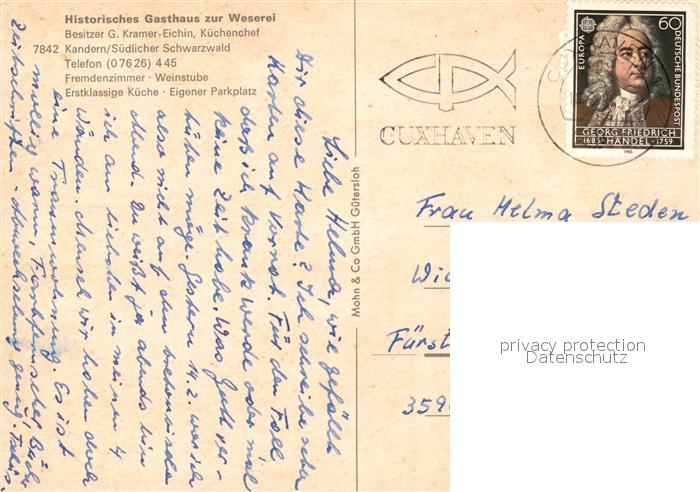 Historisches Gasthaus zur Weserei
Besitzer G. Kramer-Eichin, Küchenchef
7842 Kandern/Südlicher Schwarzwald
Telefon (07626) 445
Fremdenzimmer · Weinstube
Erstklassige Küche · Eigener Parkplatz
Liebe Helma, wie gefällt
Dir diese Karte? Ich schreibe schon
Karten auf Vorrat. Für den Fall
daß ich krank werde oder mal
keine Zeit habe. Was Gott ver-
hüten möge. Gestern 14.2. war ich
also mit auf dem
Abend. Du weißt ja abends bin
ich am liebsten in meinen 4
Wänden. Mensch wir haben doch
eine Traumwohnung. Es ist
mollig warm, Fernseher, Bücher
Zeitschriften - Abwechslung genug. Tschüs.
Mohn & Co GmbH Gütersloh
CUXHAVEN
EUROPA
60
DEUTSCHE BUNDESPOST
GEORG FRIEDRICH
1685 · HÄNDEL · 1759
1985
Frau Helma Steden
Wid
Fürst
359
privacy protection
Datenschutz